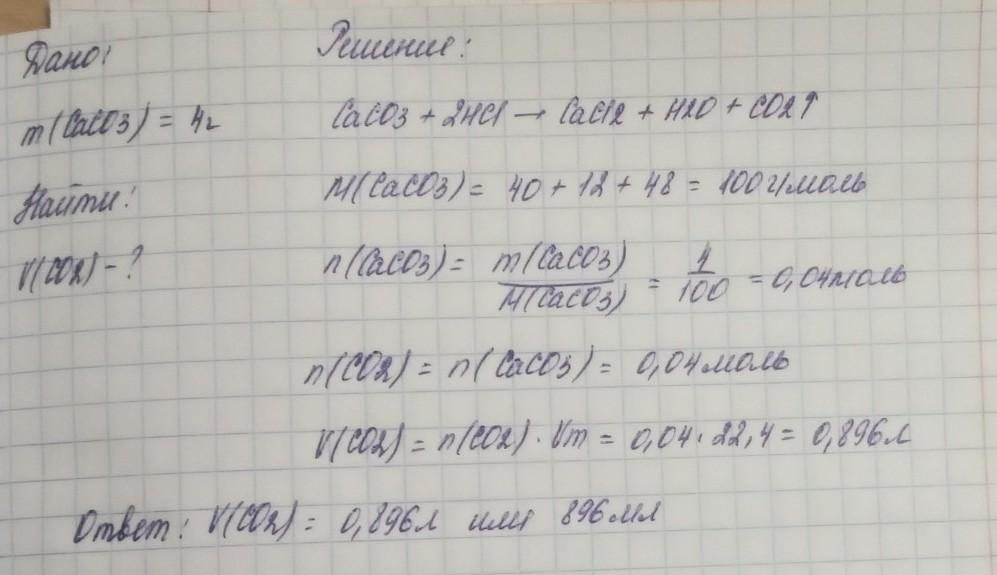 Дано:
Решение:
m(CaCO3) = 4г
CaCO3 + 2HCl → CaCl2 + H2O + CO2↑
Найти:
M(CaCO3) = 40 + 12 + 48 = 100 г/моль
V(CO2) - ?
n(CaCO3) = m(CaCO3) / M(CaCO3) = 4 / 100 = 0,04 моль
n(CO2) = n(CaCO3) = 0,04 моль
V(CO2) = n(CO2) · Vm = 0,04 · 22,4 = 0,896 л
Ответ: V(CO2) = 0,896 л или 896 мл